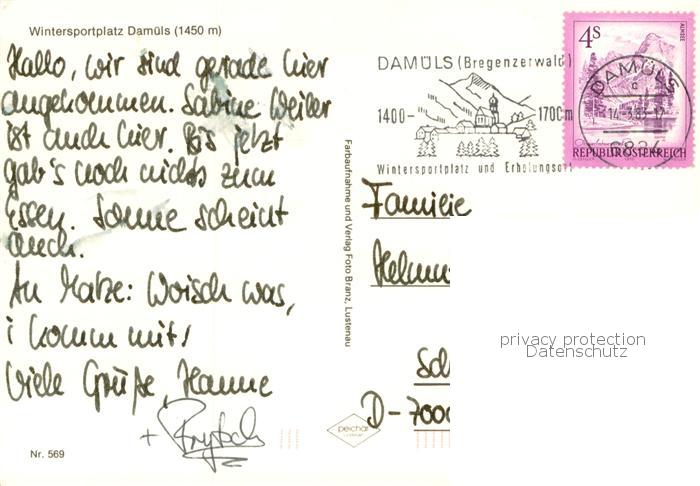 Wintersportplatz Damüls (1450 m)
Hallo, wir sind gerade hier
angekommen. Sabine Weiler
ist auch hier. Bis jetzt
gab's noch nichts zum
Essen. Sonne scheint
auch.
An Matze: Woisch was,
i komm mit!
Viele Grüße, Hanne
+
Nr. 569
Farbaufnahme und Verlag Foto Branz, Lustenau
peichar
DAMÜLS (Bregenzerwald)
1400- 1700m
Wintersportplatz und Erholungsort
4S
ALMSEE
REPUBLIK ÖSTERREICH
DAMÜLS
c
6884
Familie
Helmu
Sch
D-7000
privacy protection
Datenschutz